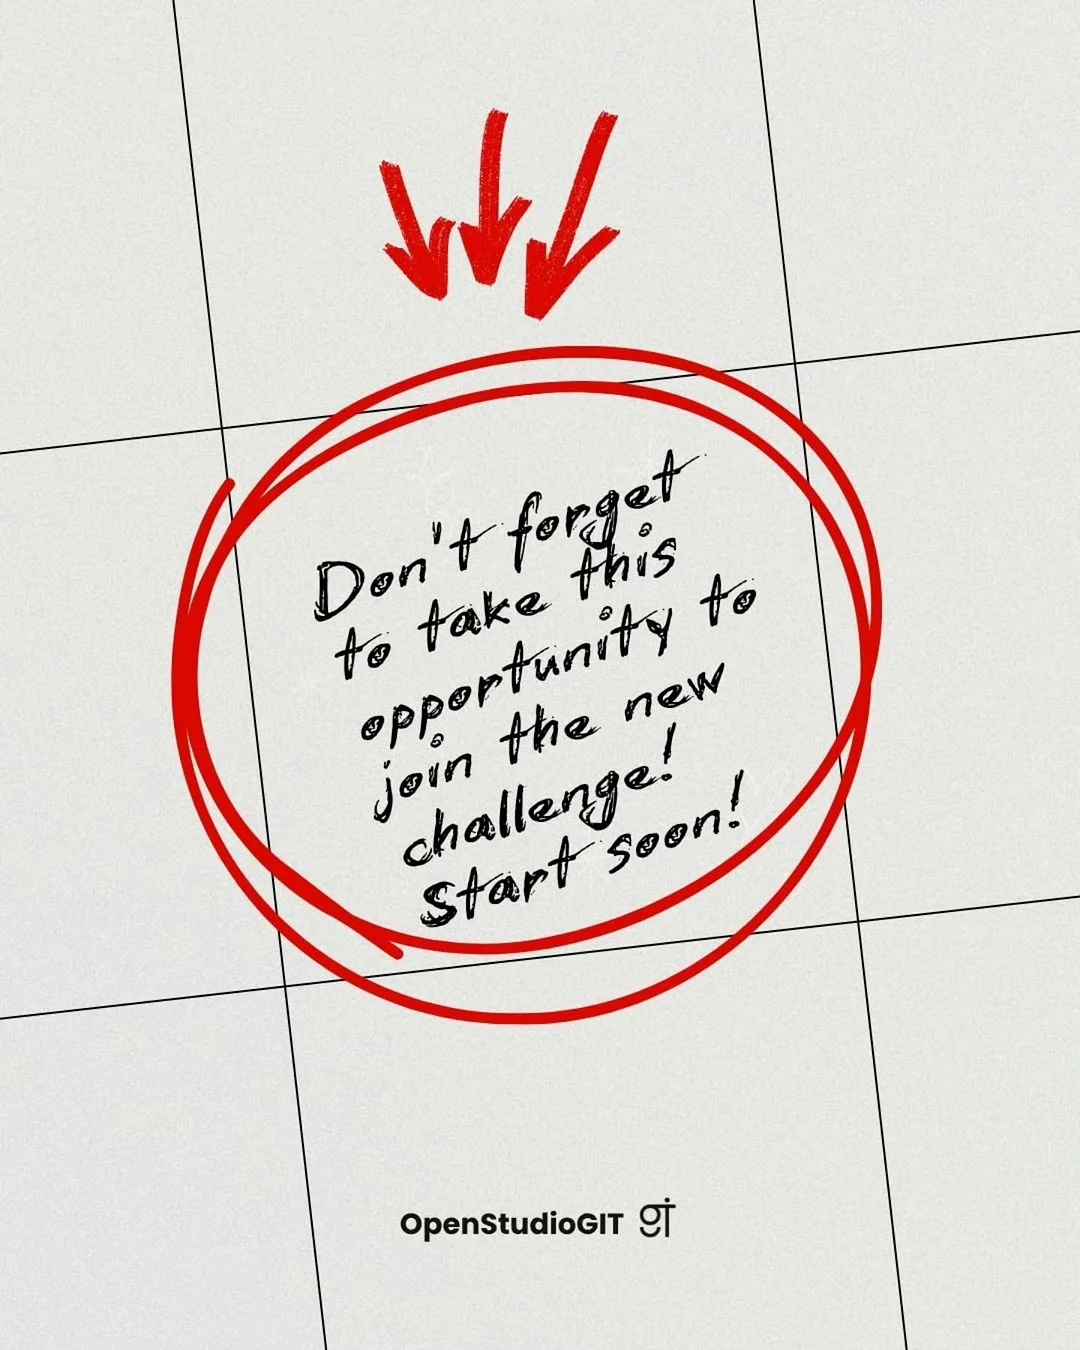 Don't forget
to take this
opportunity to
join the new
challenge!
Start soon!
OpenStudioGIT